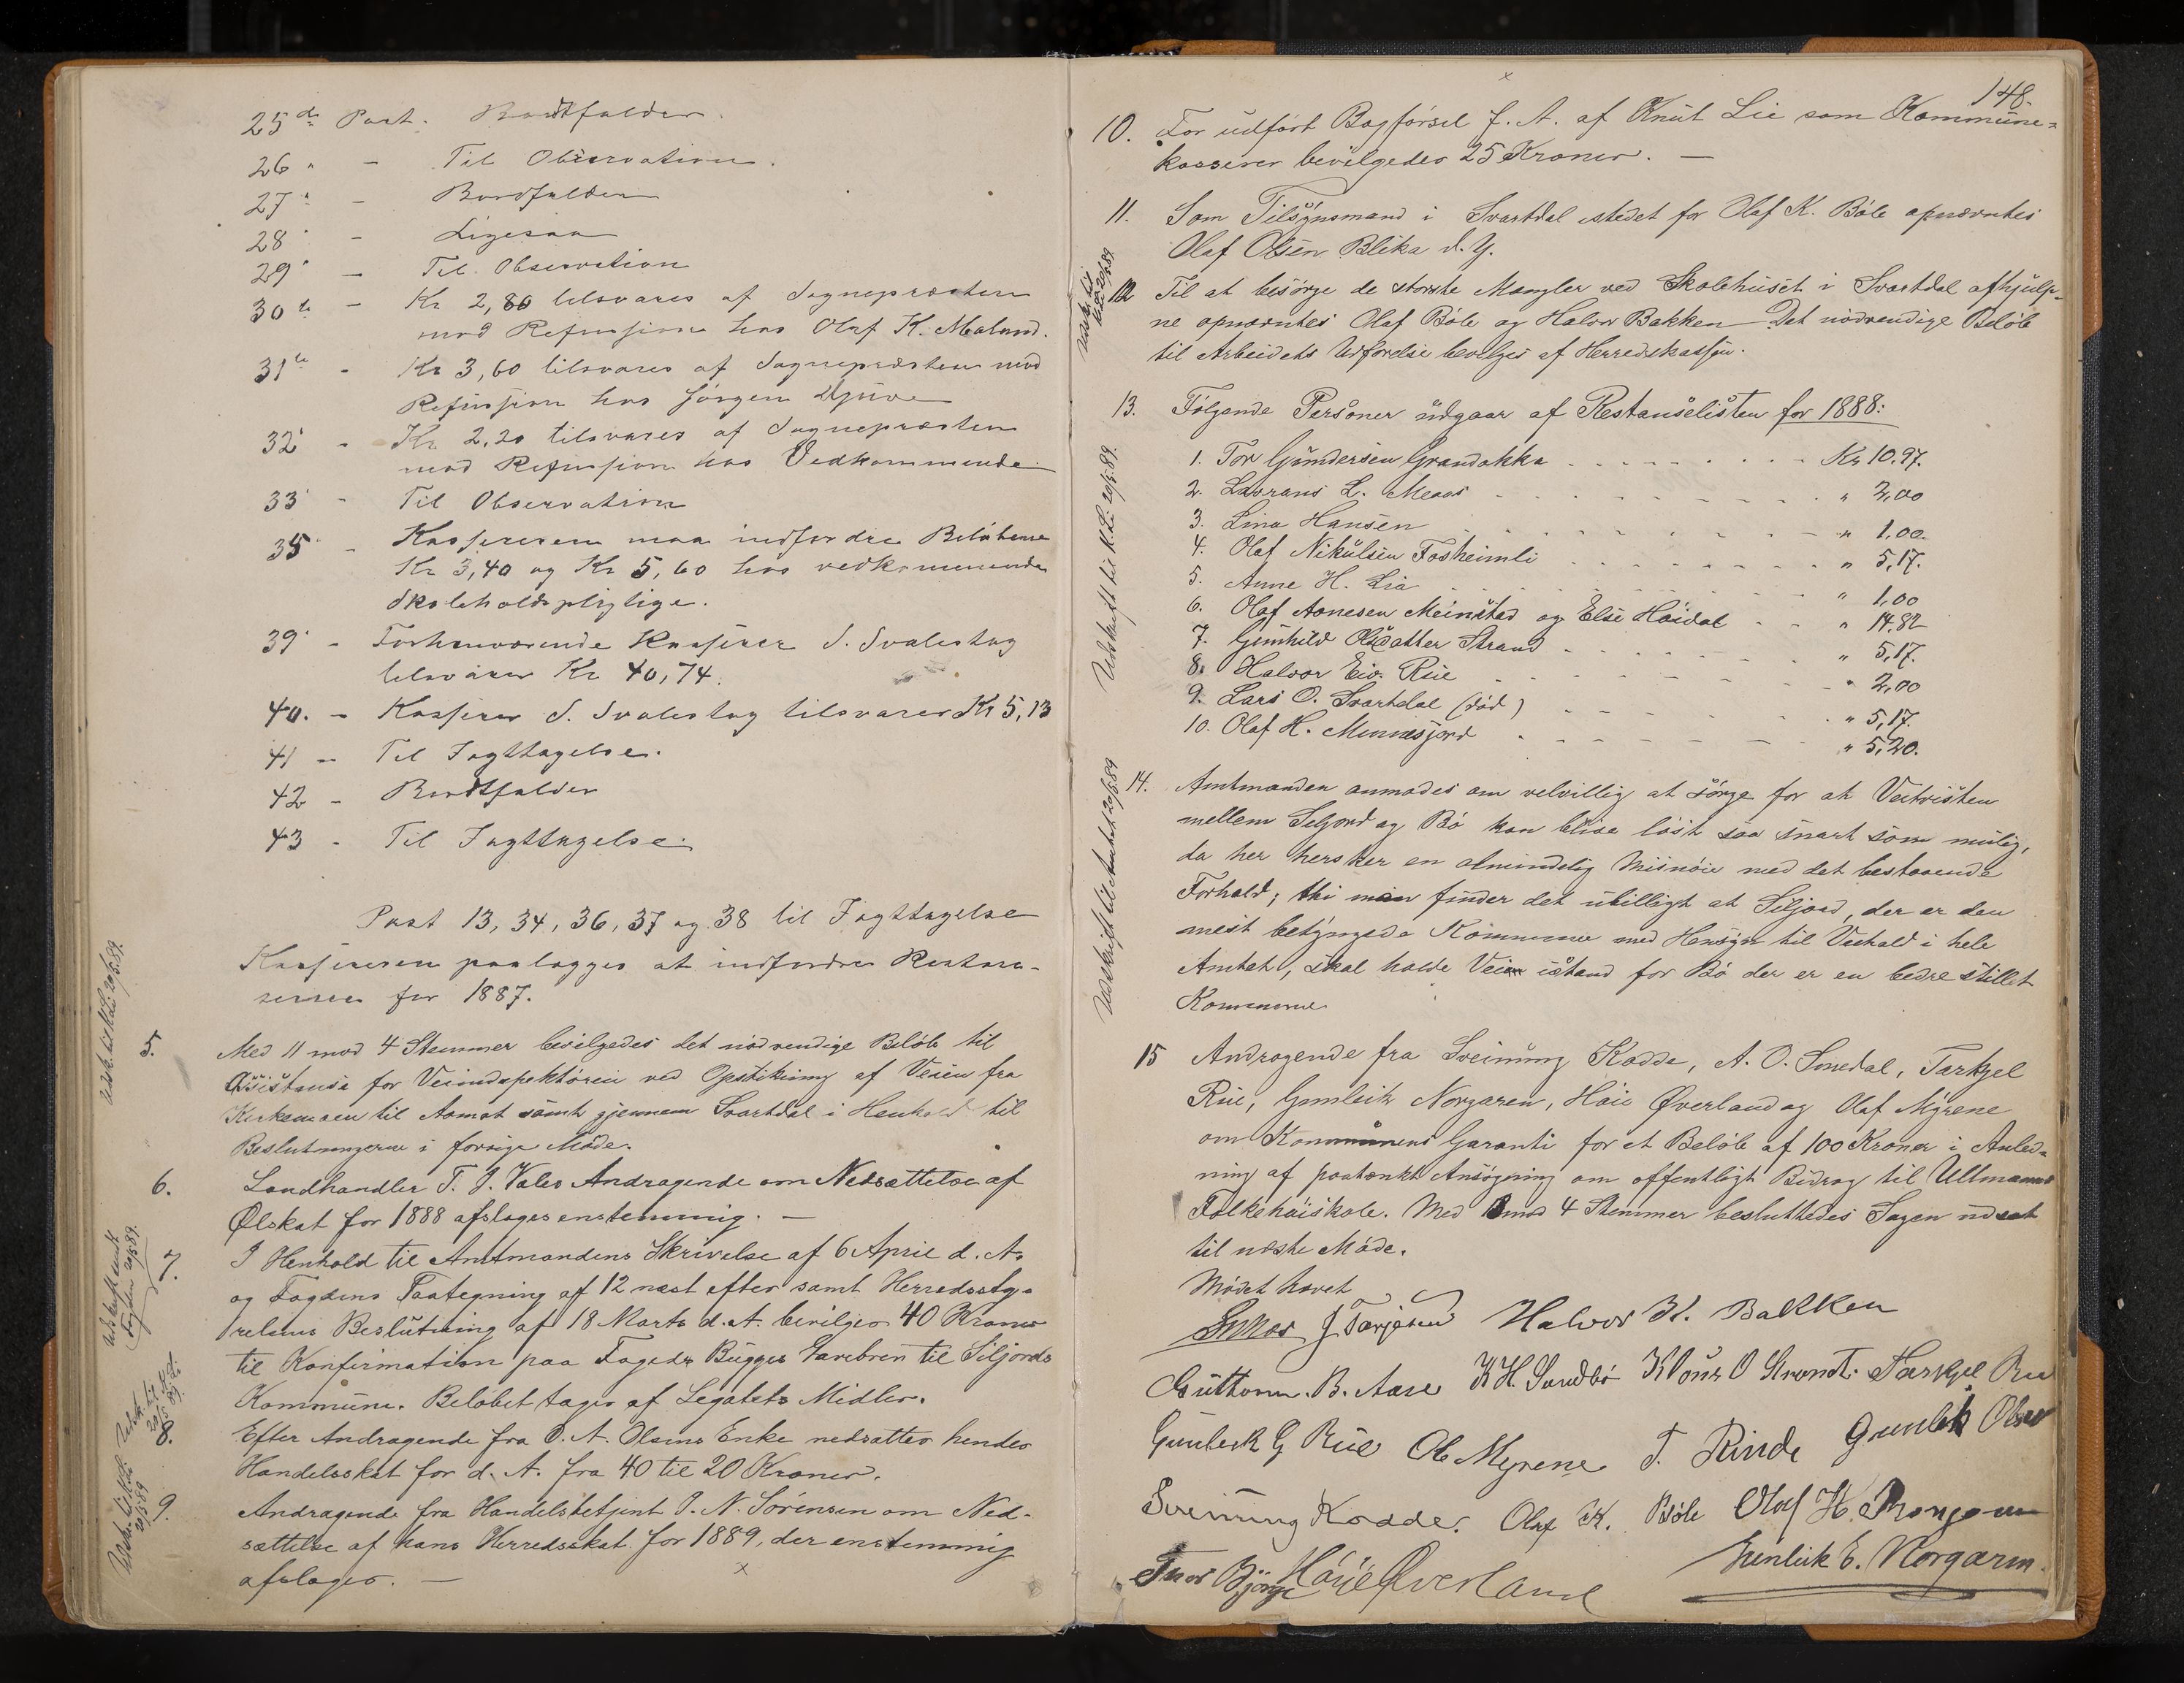 25de Post. Bortfalder.
26 " - Til Observation.
27 " - Bortfalder
28 " - Ligesaa
29 " - Til Observation
30te - Kr 2,80 tilsvares af Sognepræsten
mod Refusjion hos Olaf K. Moland.
31te - Kr 3,60 tilsvares af Sognepræsten mod
Refusjion hos Jørgen Djuve
32 - Kr 2,20 tilsvares af Sognepræsten
mod Refusjion hos Vedkommende
33 - Til Observation
35 - Kassereren maa indfordre Beløbene
Kr 3,40 og Kr 5,60 hos vedkommende
Skoleholdspligtige.
39 - Forhenværende Kasserer S. Svalestog
tilsvarer Kr 40,74.
40. - Kasserer S. Svalestog tilsvarer Kr 5,13
41 - Til Iagttagelse.
42 - Bortfalder
43 - Til Iagttagelse.
Post 13, 34, 36, 37 og 38 til Iagttagelse
Kassereren paalægges at indfordre Restan-
serne for 1887.
Udsk. til K.Li. 20/5 89.
5. Med 11 mod 4 Stemmer bevilgedes det nødvendige Beløb til
Assistanse for Veiinspektøren ved Opstikning af Veien fra
Kirkemoen til Aamot samt gjennem Svartdal i Henhold til
Beslutningerne i forrige Møde.
6. Landhandler T. J. Vales Andragende om Nedsættelse af
Ølskat for 1888 afslages enstemmig. -
Udskrift sendt
Fogden 20/5 89.
7. I Henhold til Amtmandens Skrivelse af 6 April d. A.
og Fogdens Paategning af 12 næst efter samt Herredssty-
relsens Beslutning af 18 Marts d. A. bevilges 40 Kroner
til Konfirmation paa Fogeds Bugges Gavebrev til Siljords
Kommune. Beløbet tages af Legatets Midler.
8. Efter Andragende fra O. A. Olsens Enke nedsættes hendes
Handelsskat for d. A. fra 40 til 20 Kroner.
9. Andragende fra Handelsbetjent J. N. Sørensen om Ned-
sættelse af hans Herredsskat for 1889, der enstemmig
afslages. -
x
x
148.
10. For udført Bogførsel f. A. af Knut Lie som Kommune-
kasserer bevilgedes 25 Kroner. -
11. Som Tilsynsmand i Svartdal istedet for Olaf K. Bøle opnævntes
Olaf Olsen Blika d. Y.
12 Til at besørge de største Mangler ved Skolehuset i Svartdal afhjulp-
ne opnævntes Olaf Bøle og Halvor Bakken Det nødvendige Beløb
til Arbeidets Udførelse bevilges af Herredskassen.
Udskrift til K.Li. 20/5 89.
13. Følgende Personer udgaar af Restanselisten for 1888:
1. Tor Gundersen Grandokka - Kr 10.97.
2. Lavrans L. Moaas - " 2,00
3. Lina Hansen - " 1,00.
4. Olaf Nikulsen Fosheimli - " 5,17.
5. Anne H. Lia - " 1,00
6. Olaf Aanesen Meinstad og Else Høidal - " 14,82
7. Gunhild Olsdatter Strand - " 5,17.
8. Halvor Eiv. Rue - " 2,00
9. Lars O. Svartdal (død) - " 5,17.
10. Olaf H. Minnesjord - " 5,20.
Udskrift til Amtet 20/5 89
14. Amtmanden anmodes om velvillig at sørge for at Veitvisten
mellem Seljord og Bø kan blive løst saa snart som mulig,
da her hersker en almindelig Misnøie med det bestaaende
Forhold; thi man finder det ubilligt at Siljord, der er den
mest betyngede Kommune med Hensyn til Veihold i hele
Amtet, skal holde Vei istand for Bø der er en bedre stillet
Kommune
15 Andragende fra Sveinung Kodde, A. O. Smedal, Tarkjel
Rue, Gunleik Norgaren, Høie Øverland og Olaf Myrene
om Kommunens Garanti for et Beløb af 100 Kroner i Anled-
ning af paatænkt Ansøgning om offentligt Bidrag til Ullmanns
Folkehøiskole. Med mod 4 Stemmer besluttedes Sagen udsat
til næste Møde.
Mødet hævet
J Tarjesen Halvor K. Bakken
Guttorm. B. Aase K H. Sundbø O Strond. Tarkjel Rue
Gunleik G Rue Ole Myrene T. Rinde Gunleik Olsen
Sveinung Kodde. Olaf K. Bøle Olaf H.
Bjørge Høie Øverland Gunleik E. Norgaren.